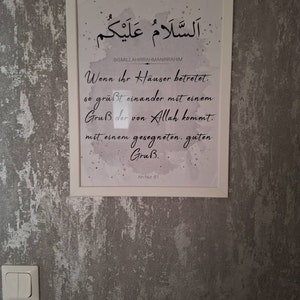 اَلسَّلَامُ عَلَيْكُم
BISMILLAHIRRAHMANIRRAHIM
Wenn ihr Häuser betretet,
so grüßt einander mit einem
Gruß der von Allah kommt,
mit einem gesegneten, guten
Gruß.